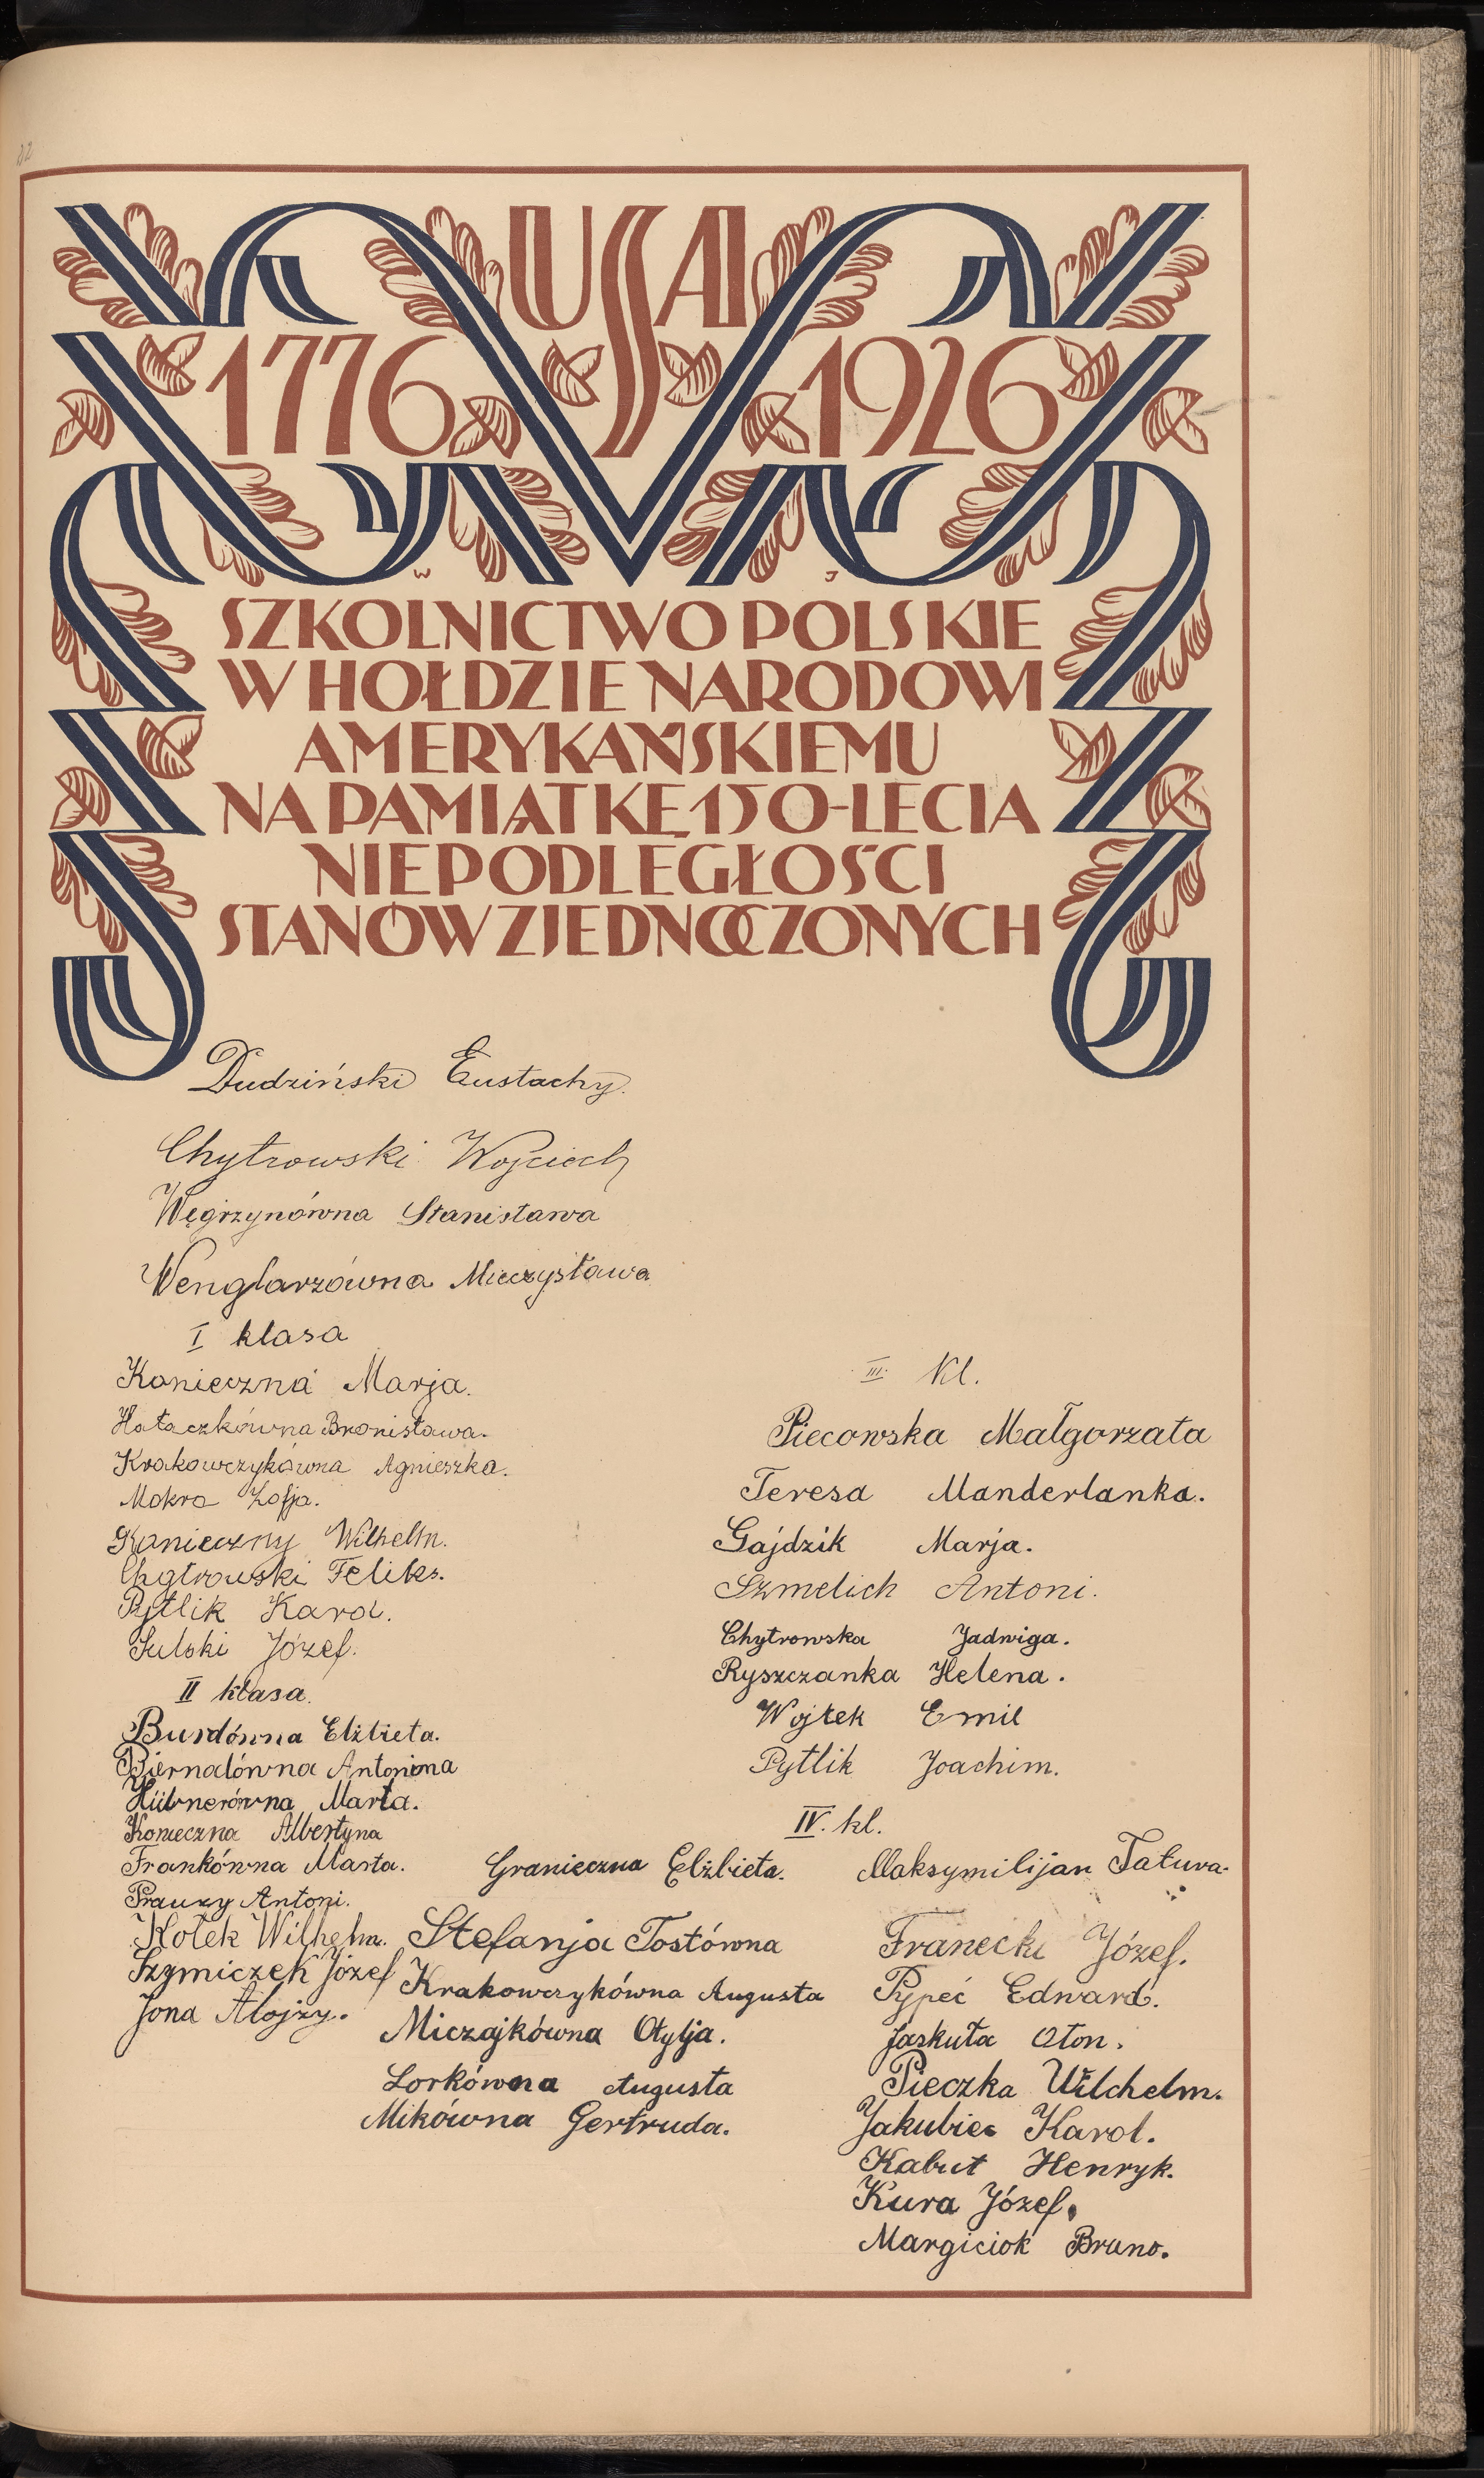 32
USA
1776 1926
W J
SZKOLNICTWO POLSKIE
W HOŁDZIE NARODOWI
AMERYKAŃSKIEMU
NA PAMIĄTKĘ 150-LECIA
NIEPODLEGŁOŚCI
STANÓW ZJEDNOCZONYCH
Dudziński Eustachy.
Chytrowski Wojciech
Węgrzynówna Stanisława
Wenglarzówna Mieczysława
I klasa
Konieczna Marja.
Hałaczkówna Bronisława.
Krakowczykówna Agnieszka.
Mokra Zofja.
Konieczny Wilhelm.
Chytrowski Feliks.
Pytlik Karol.
Sulski Józef.
II klasa.
Burdówna Elżbieta.
Biernatówna Antonina
Hübnerówna Marta.
Konieczna Albertyna
Frankówna Marta.
Prauzy Antoni.
Kołek Wilhelm.
Szymiczek Józef
Jona Alojzy.
III. Kl.
Piecowska Małgorzata
Teresa Manderlanka.
Gajdzik Marja.
Szmelich Antoni.
Chytrowska Jadwiga.
Ryszczanka Helena.
Wojtek Emil
Pytlik Joachim.
IV. kl.
Granieczna Elżbieta.
Stefanja Tostówna
Krakowczykówna Augusta
Miczajkówna Otylja.
Lorkówna Augusta
Mikówna Gertruda.
Maksymilijan Tatura.
Franecki Józef.
Pypeć Edward.
Jaskuła Oton.
Pieczka Wilchelm.
Jakubiec Karol.
Kabut Henryk.
Kura Józef.
Margiciok Bruno.